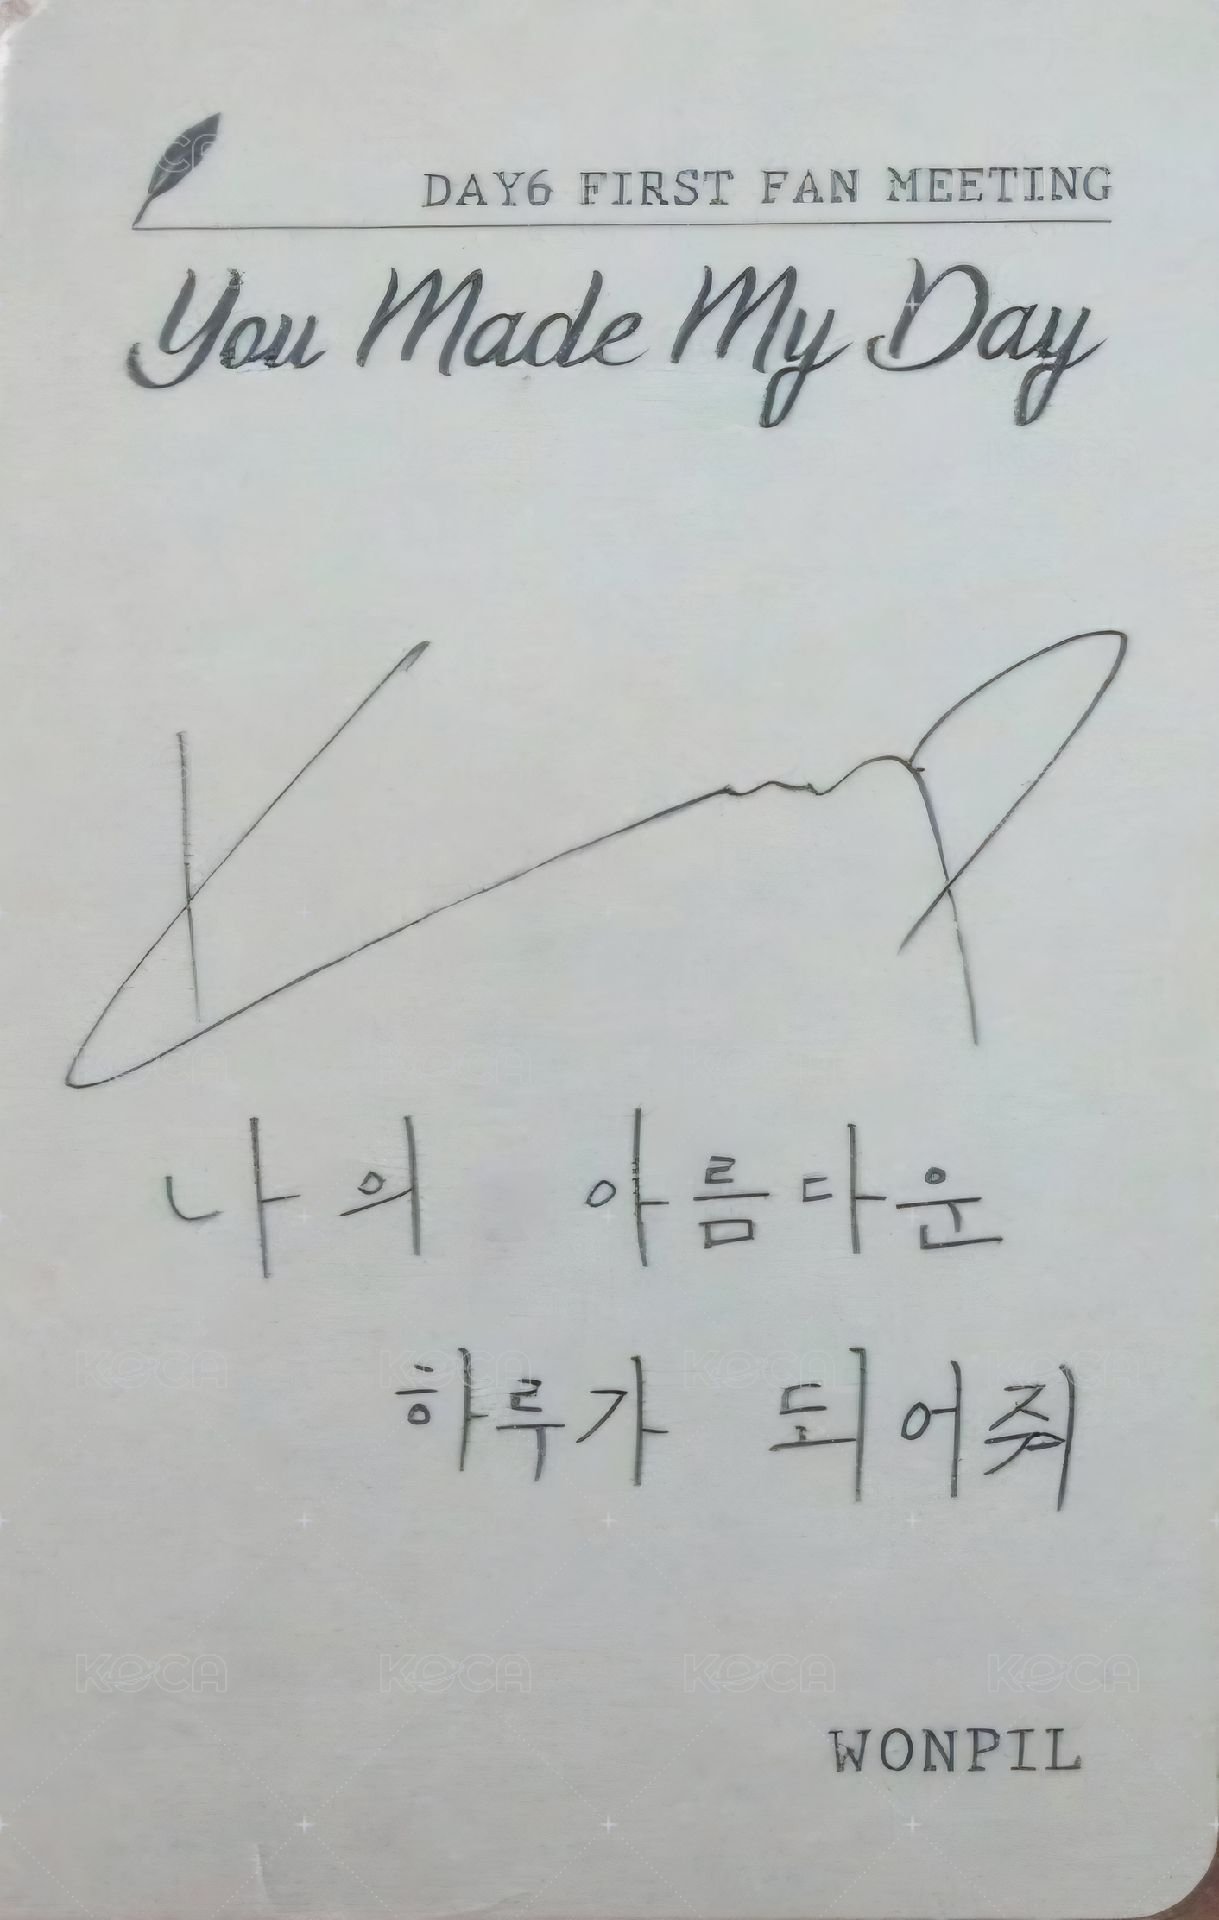 DAY6 FIRST FAN MEETING
You Made My Day
나의 아름다운
하루가 되어줘
WONPIL
KOCA KOCA KOCA KOCA